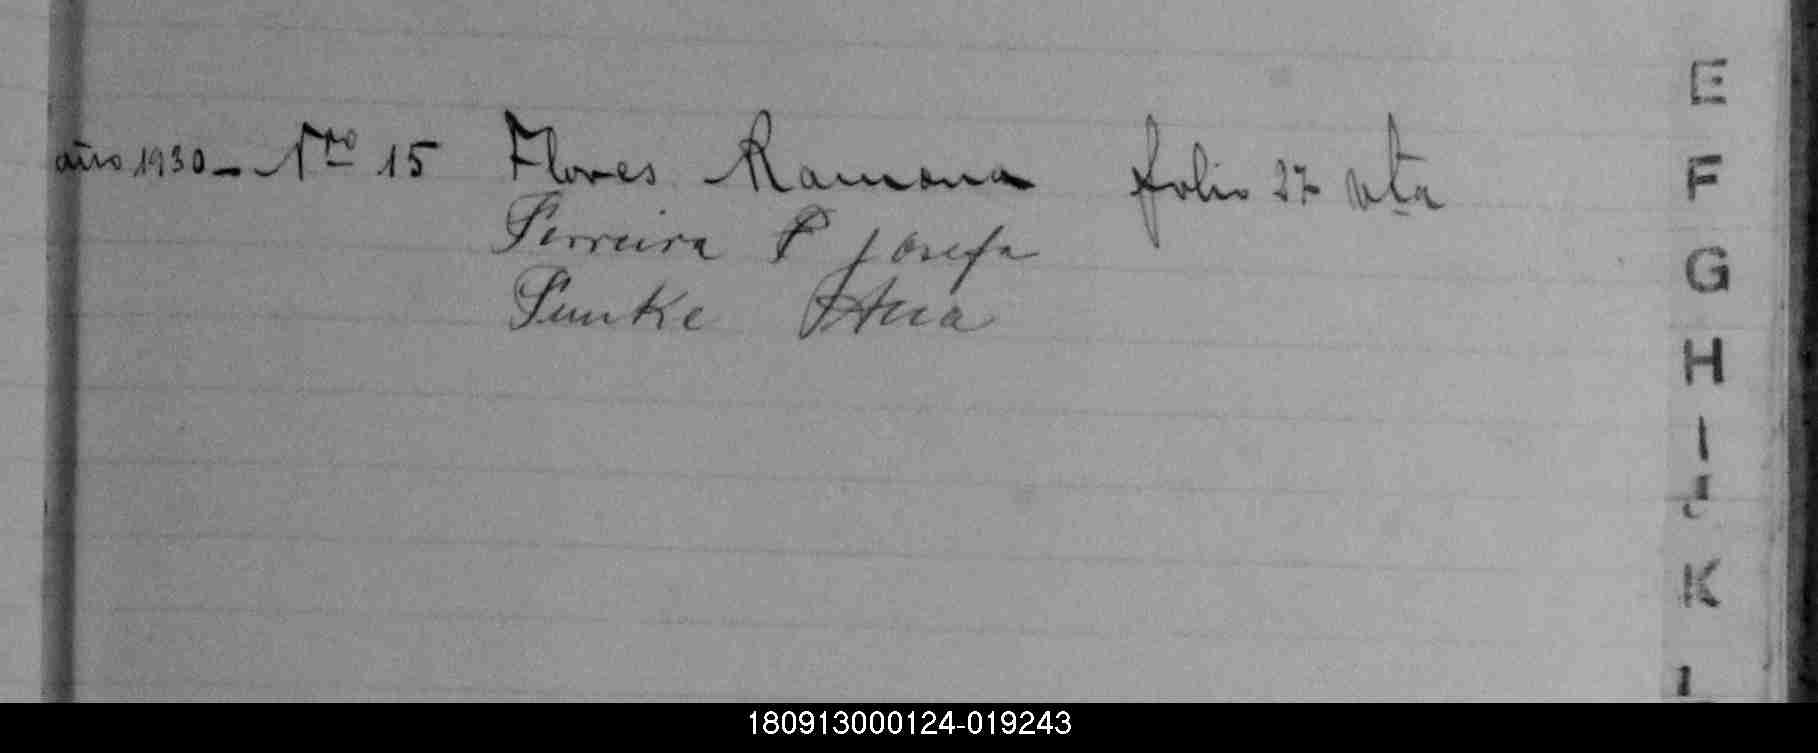 año 1930 - Nro 15 Flores Ramona folio 27 vta
Ferreira P Josefa
Funke Ana
E
F
G
H
I
J
K
L
180913000124-019243